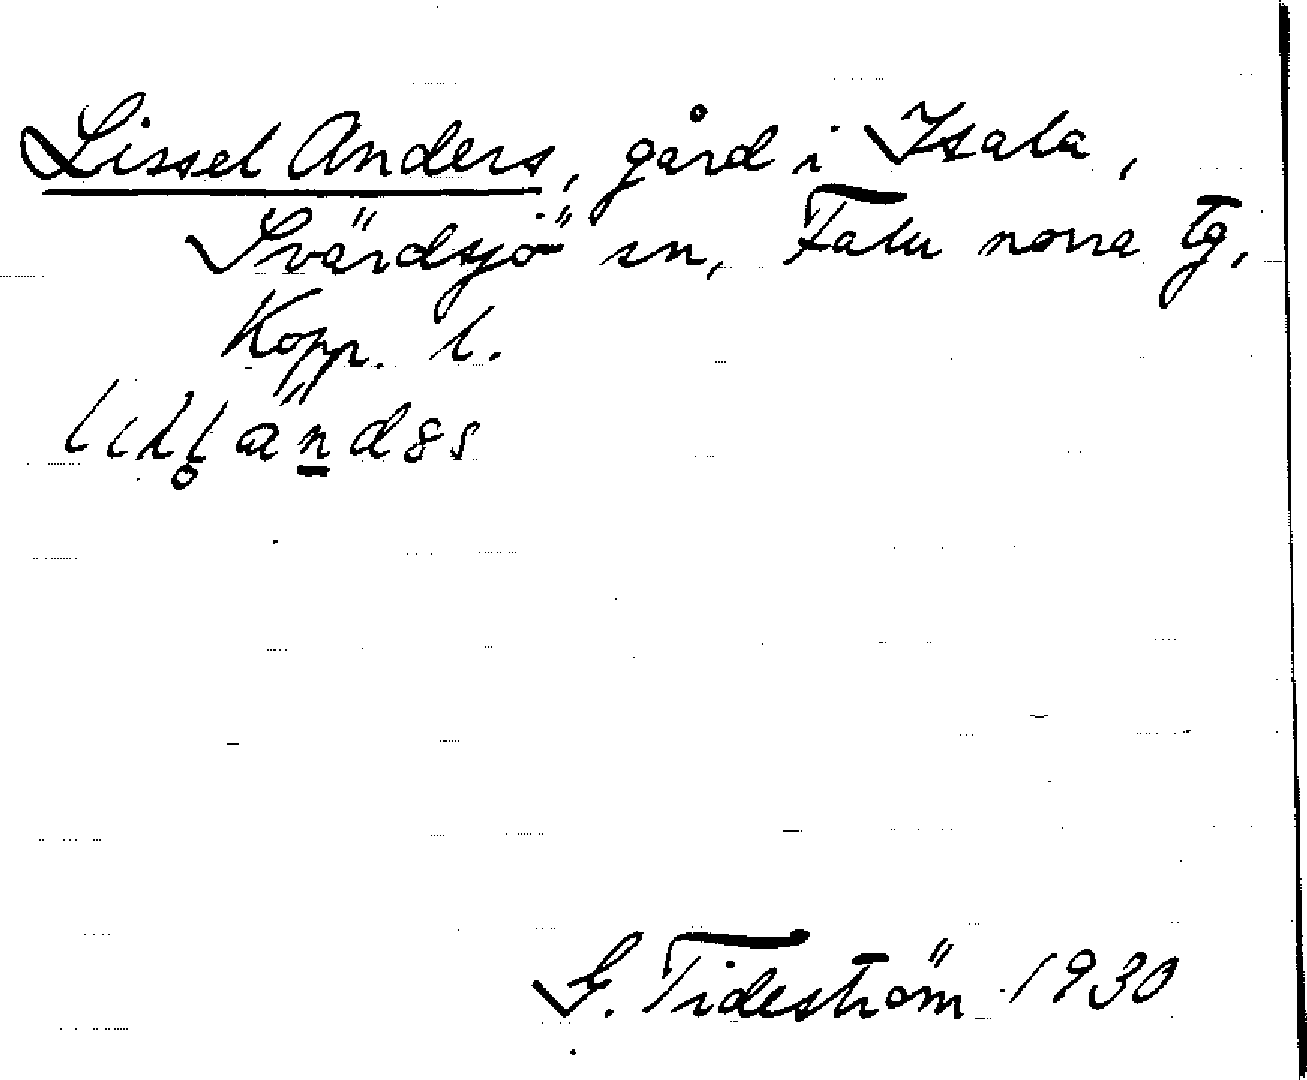 Lissel Anders, gård i Isala,
Svärdsjö sn, Falu norra tg,
Kopp. l.
G. Tideström 1930